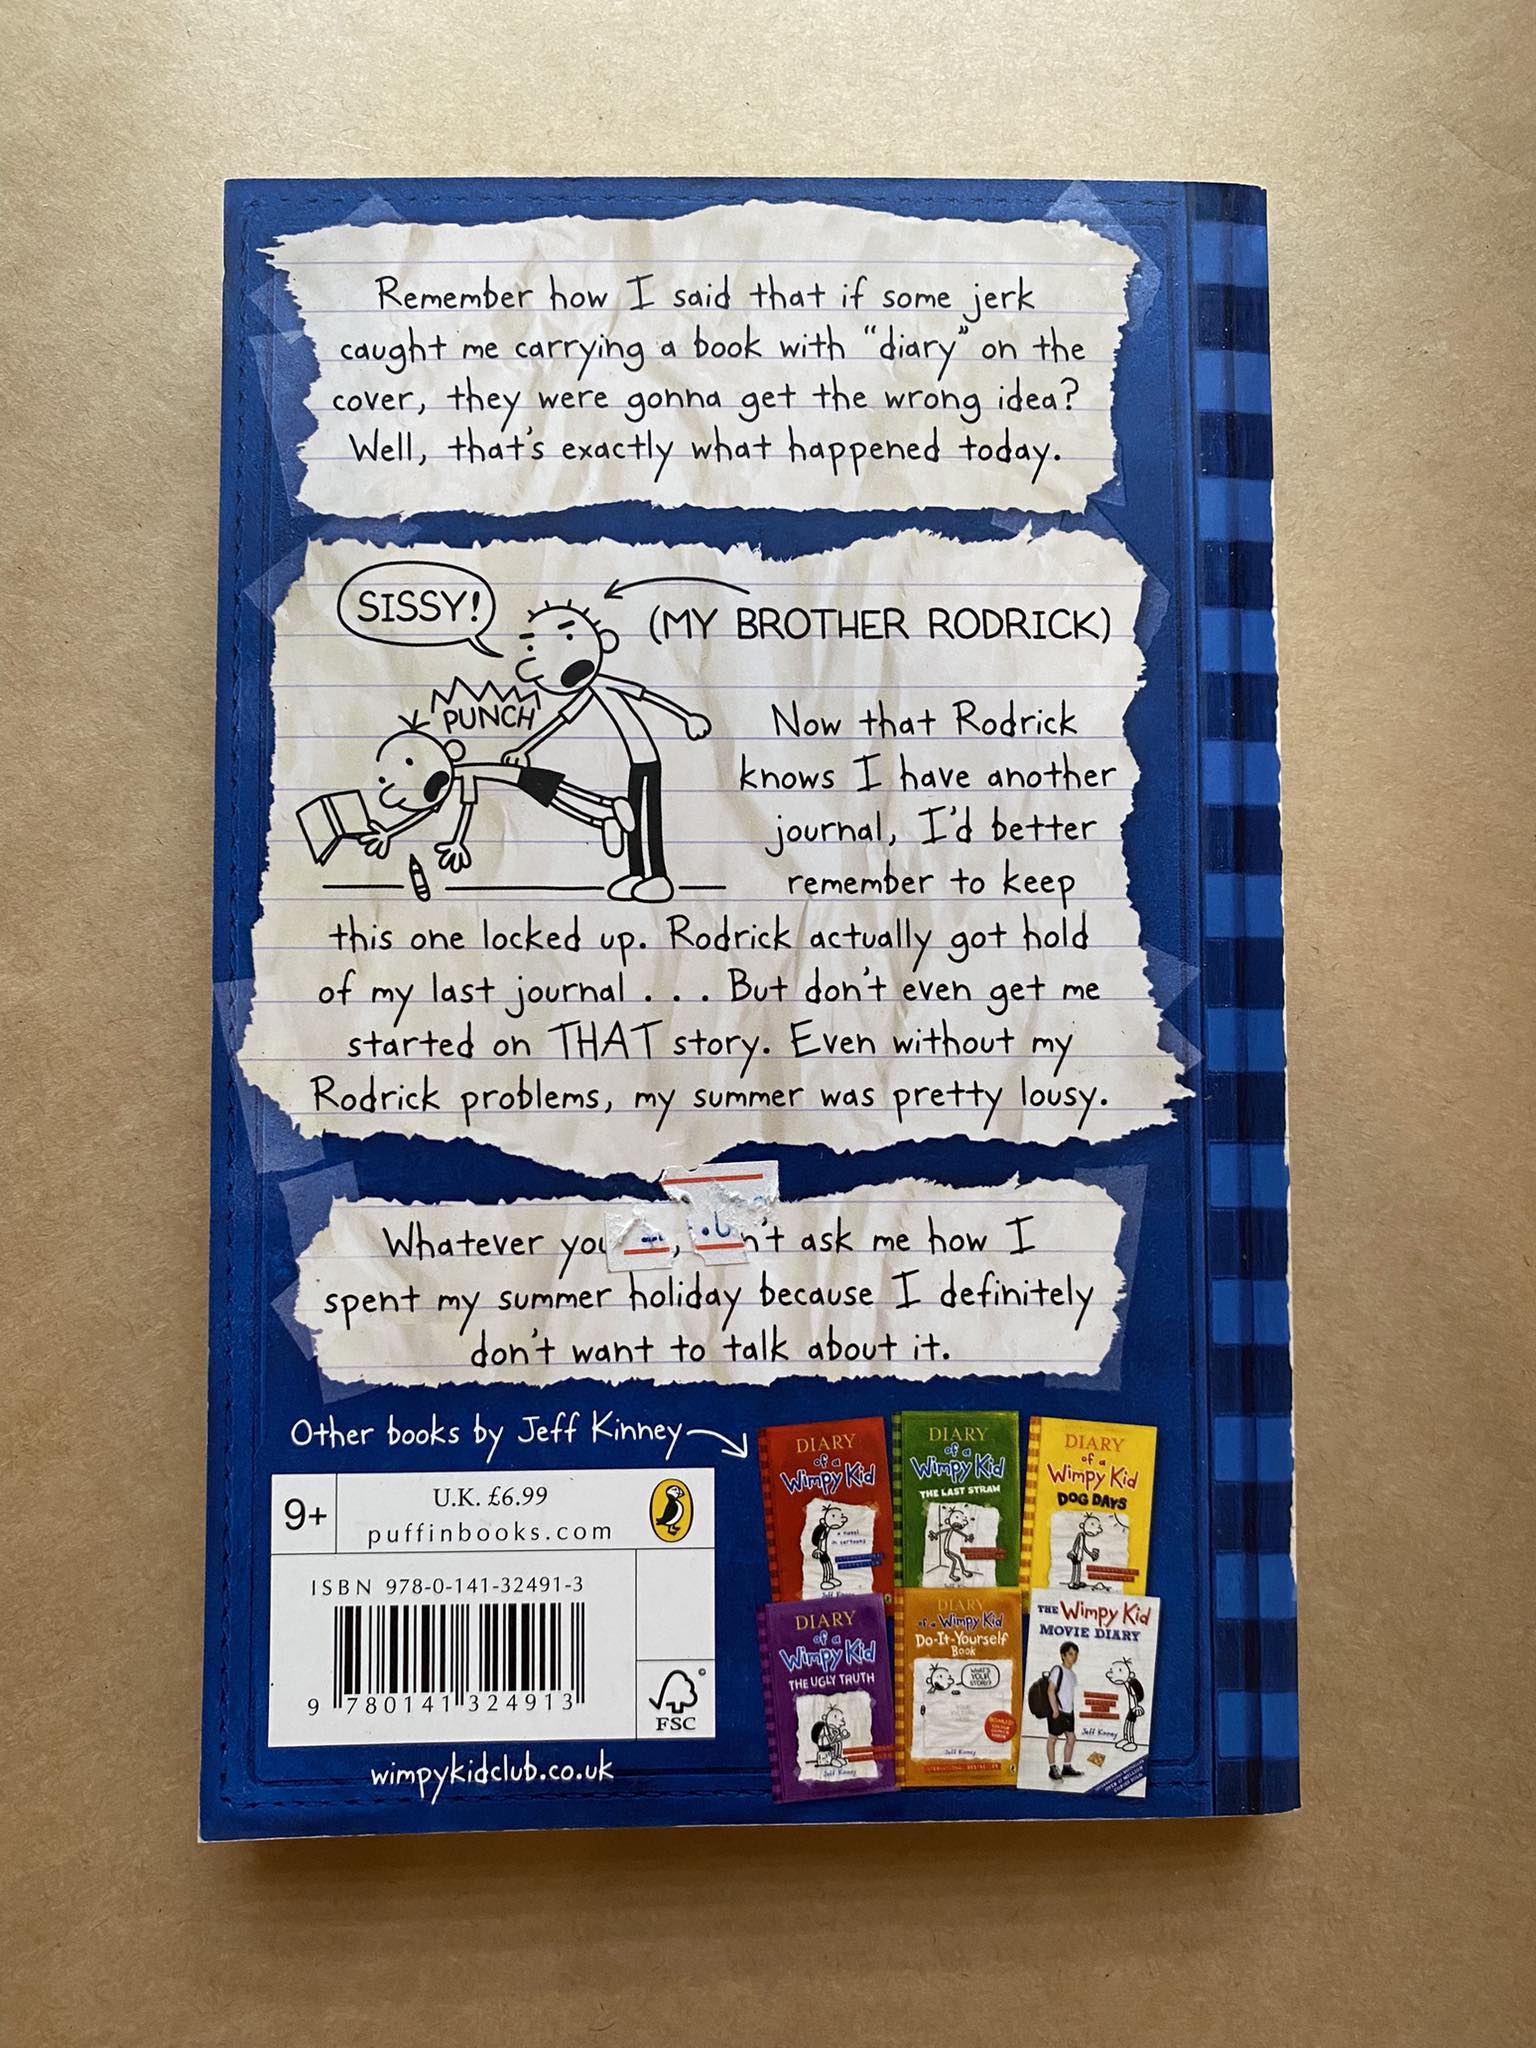 Remember how I said that if some jerk
caught me carrying a book with “diary” on the
cover, they were gonna get the wrong idea?
Well, that's exactly what happened today.
SISSY!
(MY BROTHER RODRICK)
PUNCH
Now that Rodrick
knows I have another
journal, I'd better
remember to keep
this one locked up. Rodrick actually got hold
of my last journal . . . But don't even get me
started on THAT story. Even without my
Rodrick problems, my summer was pretty lousy.
Whatever ask me how I
spent my summer holiday because I definitely
don't want to talk about it.
Other books by Jeff Kinney
9+
U.K. £6.99
puffinbooks.com
ISBN 978-0-141-32491-3
9 780141 324913
FSC
wimpykidclub.co.uk
DIARY
of a
Wimpy Kid
a novel
in cartoons
DIARY
of a
Wimpy Kid
THE LAST STRAW
DIARY
of a
Wimpy Kid
DOG DAYS
DIARY
of a
Wimpy Kid
THE UGLY TRUTH
Jeff Kinney
DIARY
of a Wimpy Kid
Do-It-Yourself
Book
WHAT'S
YOUR
STORY?
Jeff Kinney
THE Wimpy Kid
MOVIE DIARY
Jeff Kinney